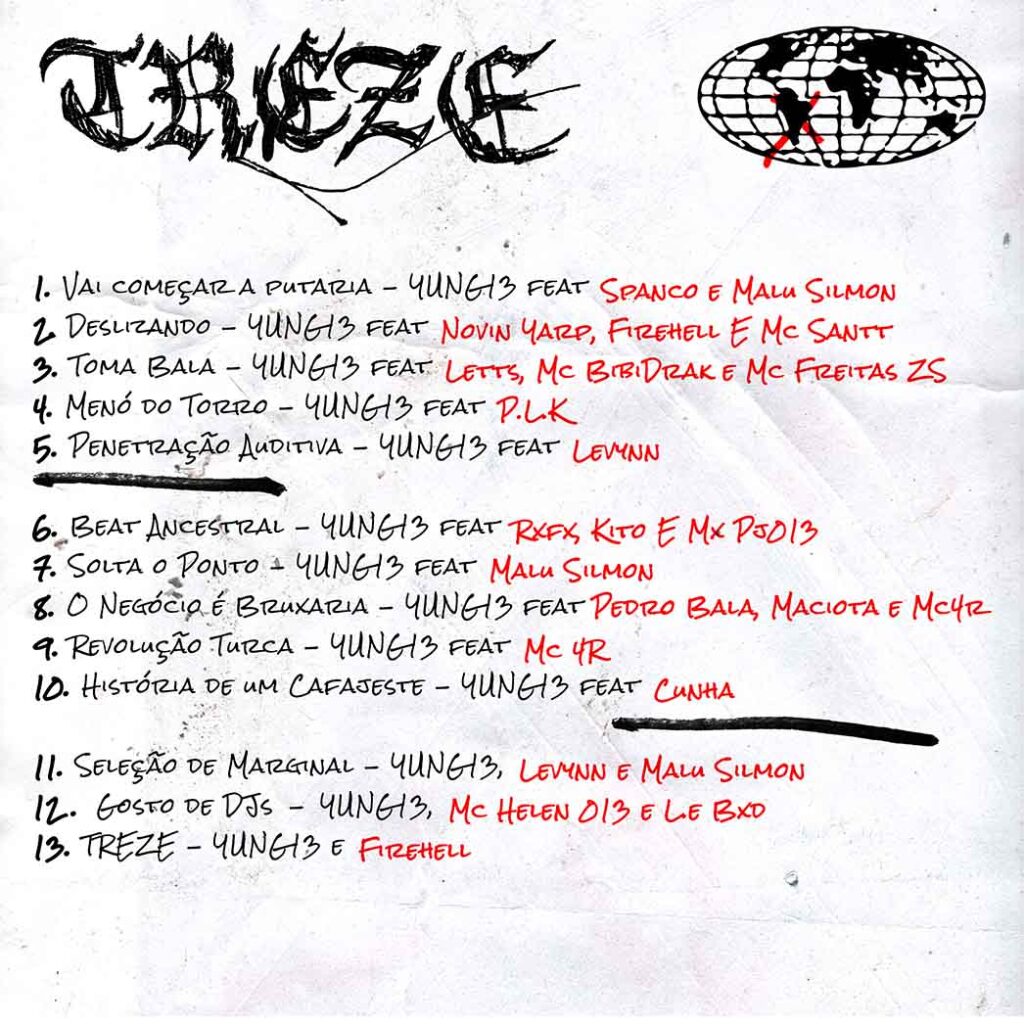 TREZE
1. Vai começar a putaria – YUNG13 feat Spanco e Malu Silmon
2. Deslizando – YUNG13 feat Novin Yarp, Firehell E Mc Santt
3. Toma Bala – YUNG13 feat Letts, Mc BibiDrak e Mc Freitas ZS
4. Menó do Torro – YUNG13 feat P.L.K
5. Penetração Auditiva – YUNG13 feat Levynn
6. Beat Ancestral – YUNG13 feat Rxfx, Kito E Mx Dj013
7. Solta o Ponto – YUNG13 feat Malu Silmon
8. O Negócio é Bruxaria – YUNG13 feat Pedro Bala, Maciota e Mc4R
9. Revolução Turca – YUNG13 feat Mc 4R
10. História de um Cafajeste – YUNG13 feat Cunha
11. Seleção de Marginal – YUNG13, Levynn e Malu Silmon
12. Gosto de DJs – YUNG13, Mc Helen 013 e L.e Bxd
13. TREZE – YUNG13 e Firehell